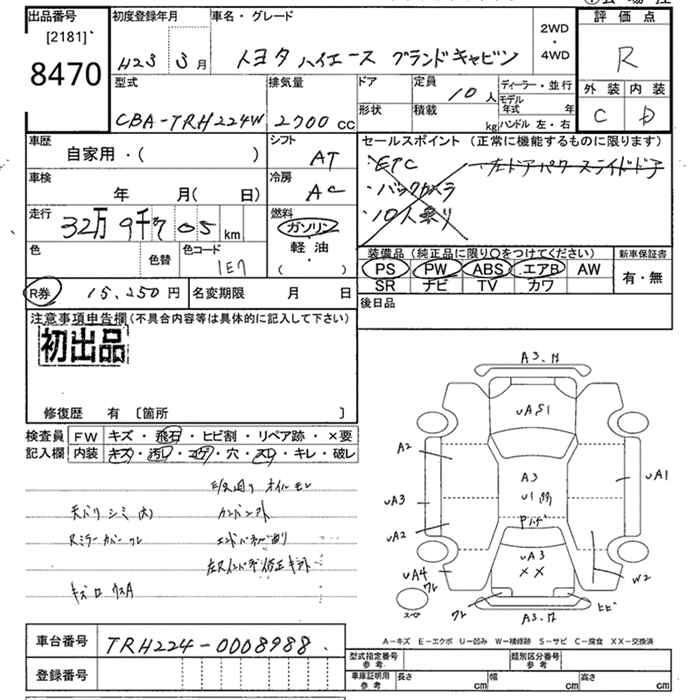 出品番号
[2181]
8470
初度登録年月
H23 3月
車名・グレード
トヨタ ハイエース グランドキャビン
2WD
・
4WD
評価点
R
外装 内装
C D
型式
CBA-TRH224W
排気量
2700 cc
ドア
形状
定員
10人
積載
kg
ディーラー・並行
モデル年式 年
ハンドル 左・右
車歴
自家用・( )
シフト
AT
車検
年 月( 日)
冷房
AC
走行
32万9千705 km
燃料
ガソリン
軽油
( )
色
色替
色コード
1E7
セールスポイント (正常に機能するものに限ります)
・ETC 左ドアパワースライドドア
・バックカメラ
・10人乗り
装備品 (純正品に限り○をつけてください)
PS PW ABS エアB AW
SR ナビ TV カワ
新車保証書
有・無
R券 15,250円
名変期限 月 日
後日品
注意事項申告欄(不具合内容等は具体的に記入して下さい)
初出品
修復歴 有 〔箇所 〕
検査員記入欄
FW キズ・飛石・ヒビ割・リペア跡・×要
内装 キズ・汚レ・コゲ・穴・スレ・キレ・破レ
天バリシミ(大)
Rミラーカバーワレ
A3.
UA51
A2
A3
U1
UA1
UA3
UA2
UA3
××
UA4
ワレ
W2
スペア
ワレ
A3.
ヒビ
車台番号 TRH224-0008988
登録番号
A-キズ E-エクボ U-凹み W-補修跡 S-サビ C-腐食 XX-交換済
型式指定番号 参考
類別区分番号 参考
車庫証明用 参考
長さ cm
幅 cm
高さ cm